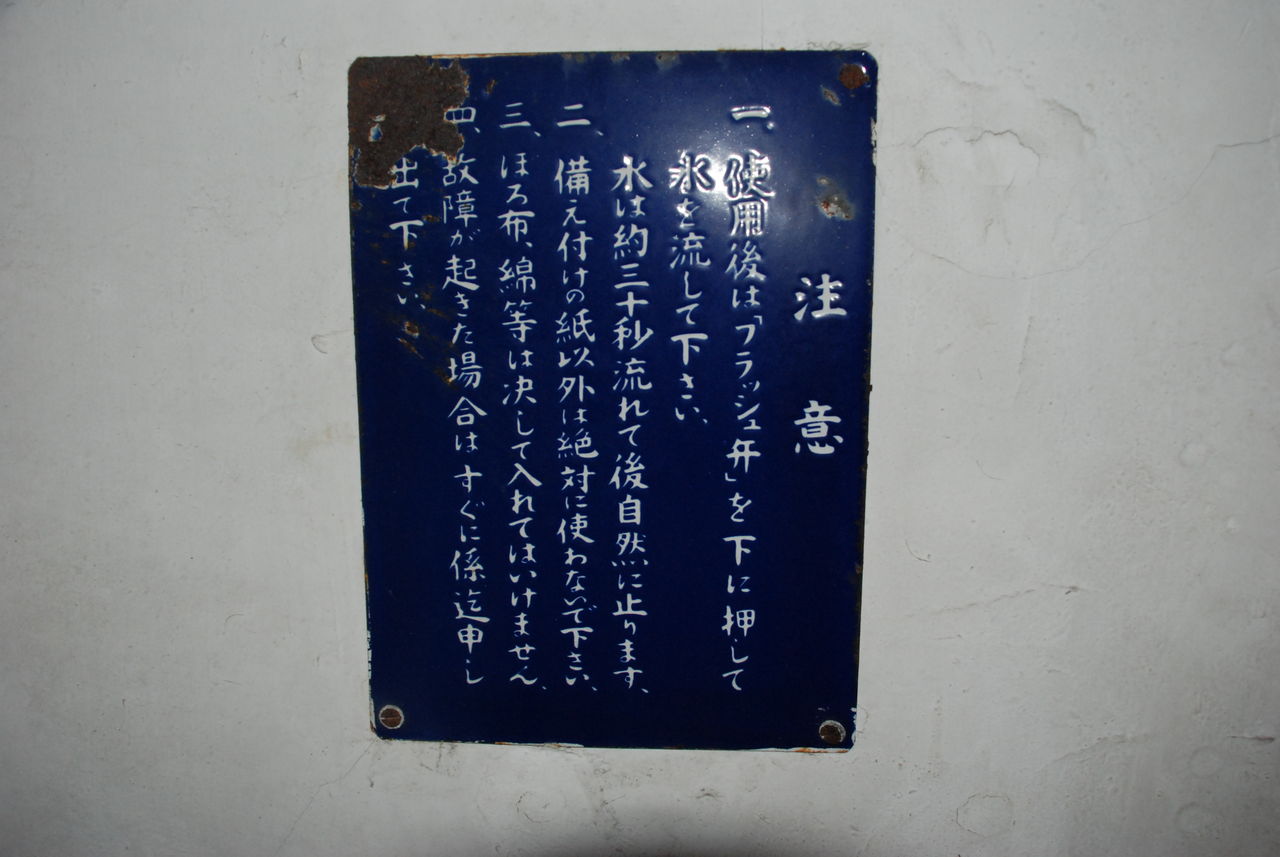 注意
一、使用後は「フラッシュ弁」を下に押して
水を流して下さい、
水は約三十秒流れて後自然に止ります、
二、備え付けの紙以外は絶対に使わないで下さい、
三、ほろ布、綿等は決して入れてはいけません、
四、故障が起きた場合はすぐに係迄申し
出て下さい、